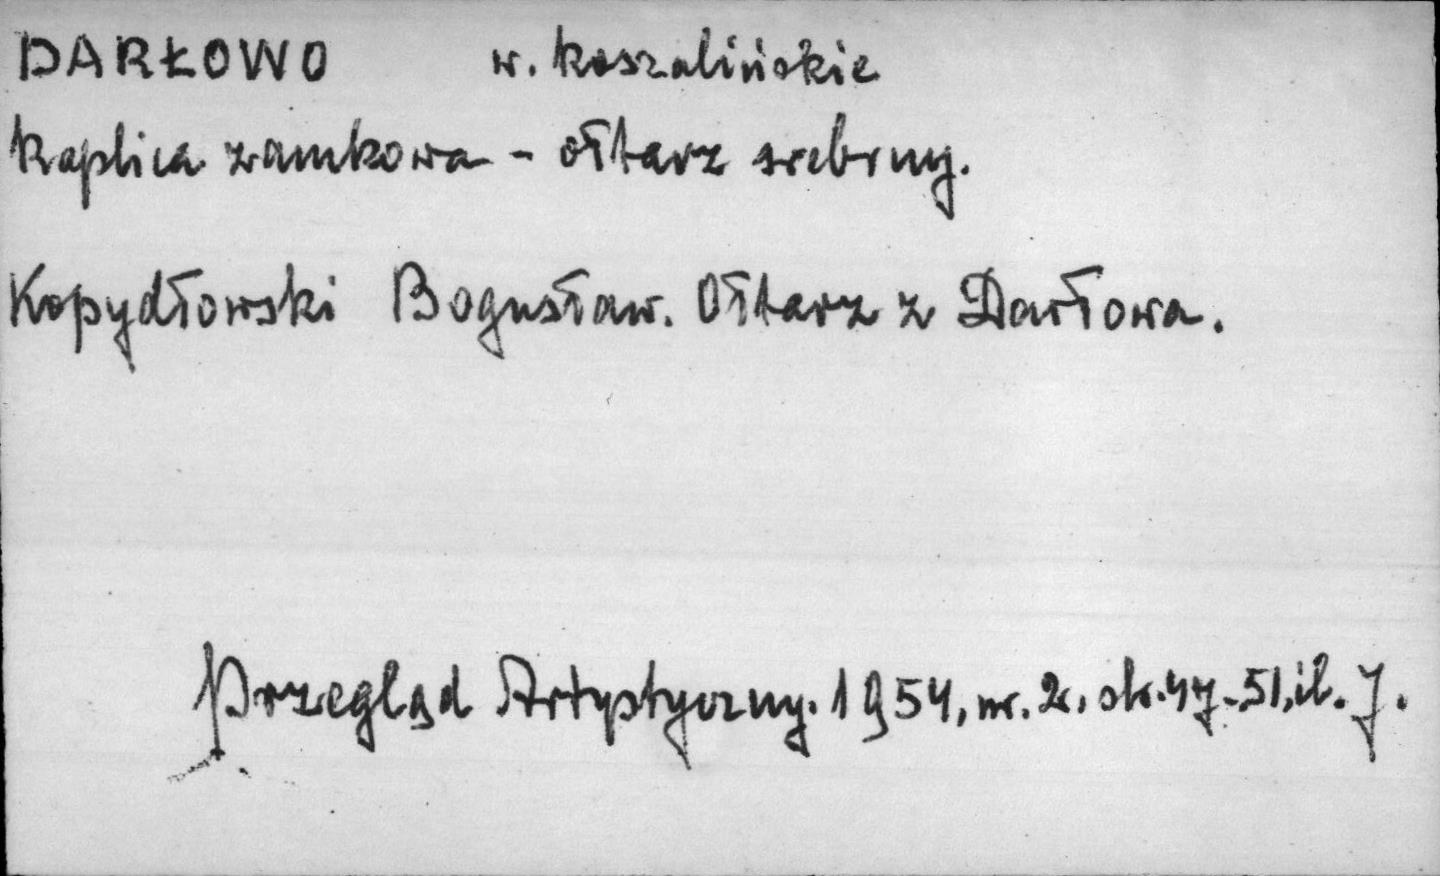 DARŁOWO w. koszalińskie
Kaplica zamkowa - ołtarz srebrny.
Kopydłowski Bogusław. Ołtarz z Darłowa.
Przegląd Artystyczny. 1954, nr. 2, str. 47-51, il. 7.